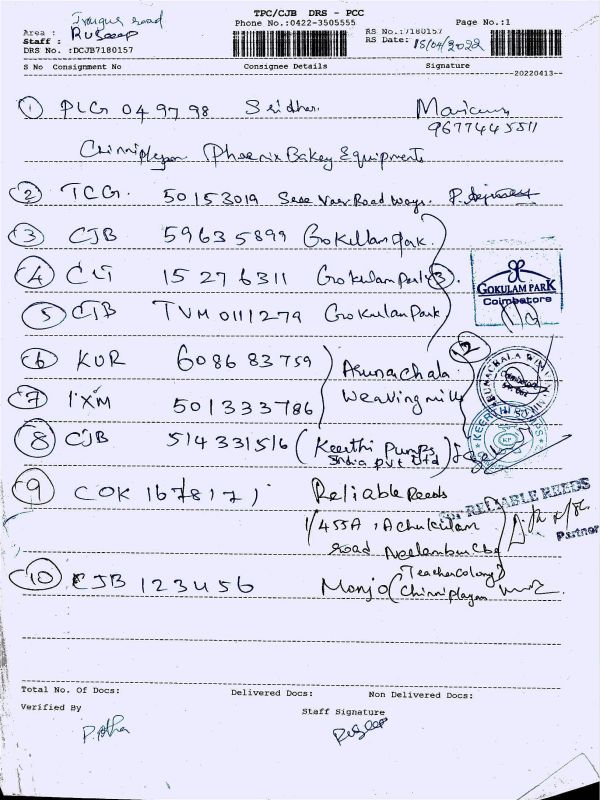 TPC/CJB DRS - PCC
Phone No.:0422-3505555
Page No.:1
road
Area :
Staff : Rudeep
DRS No. :DCJB7180157
RS No.:7180157
RS Date: 15/04/2022
S No Consignment No Consignee Details Signature
20220413
1 PLG 049798 Sridhar
9677445511
Phoenix Bakey Equipments
2 TCG. 50153019 Road ways.
3 CJB 59635899 Gokullam park.
4 15276311 Gokulam Park 3
5 CJB TVM 0111279 Gokulam Park
GOKULAM PARK
Coimbatore
6 KUR 608683759 Arunachala
7 IXM 501333786 Weaving mills
2
8 CJB 514331516 (Keerthi Pumps
India pvt Ltd)
9 COK 1678171 Reliable Reeds
For RELIABLE REEDS
Partner
1/455A, Achukulam
road Neelambur Cbe
10 CJB 123456 Manjo (Teacher Colony
Chinniplayam
Total No. Of Docs: Delivered Docs: Non Delivered Docs:
Verified By Staff Signature
Rudeep